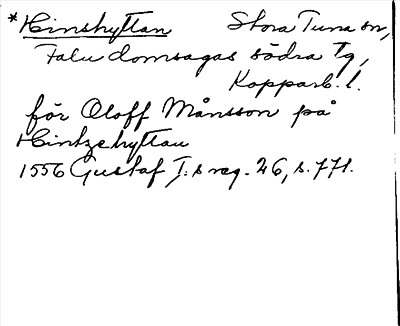 *Hinshyttan Stora Tuna sn,
Falu domsagas södra tg,
Kopparb. l.
för Oloff Månsson på
Hintzehyttan
1556 Gustaf I:s reg. 26, s. 771.